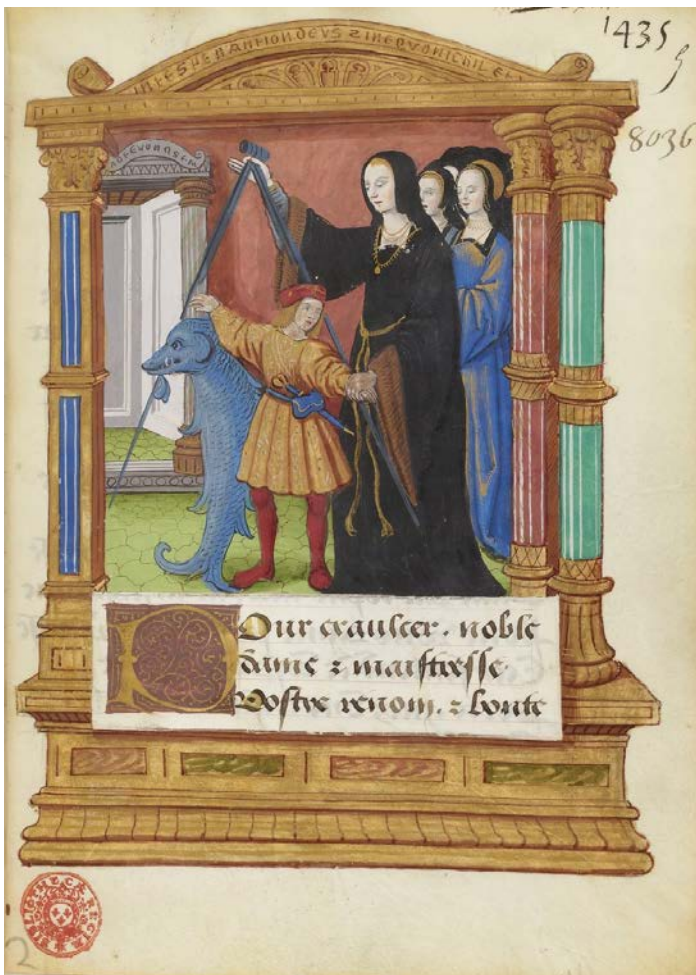 1435
5
8036
IN TE SPERANTION DEVS SINE QVO NICHIL
POur exaulcer . noble
dame & maistresse
Vostre renom . & bonte
BIBLIOTHECÆ REGIÆ
2